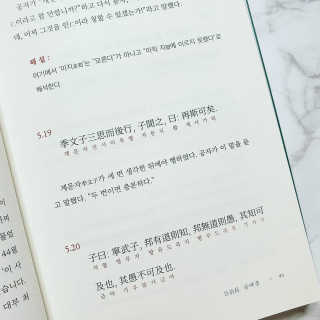 이라고 할 만합니까?"라고 다시 묻자,
데, 어찌 그것을 인仁이라 칭할 수 있겠는가?"라고 말했다.
해설 :
여기에서 '미지未知'는 '모른다'가 아니고 '아직 지知에 이르지 못했다'로
해석한다.
5.19
季文子三思而後行, 子聞之, 曰: 再斯可矣.
계문자삼사이후행 자문지 왈 재사가의
계문자季文子가 세 번 생각한 뒤에야 행하였다. 공자가 이 말을 듣
고 말했다. "두 번이면 충분하다."
5.20
子曰: 甯武子, 邦有道則知, 邦無道則愚, 其知可
자왈 영무자 방유도즉지 방무도즉우 기지가
及也, 其愚不可及也.
급야 기우불가급야
44율
'이 사
습니다.
대부 최